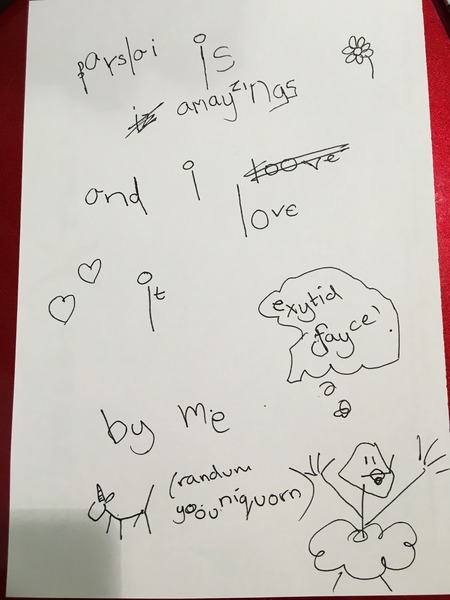 parslai is
amayzings
and i
love
it
exytid
fayce
by me
(randum
yoouniquorn)